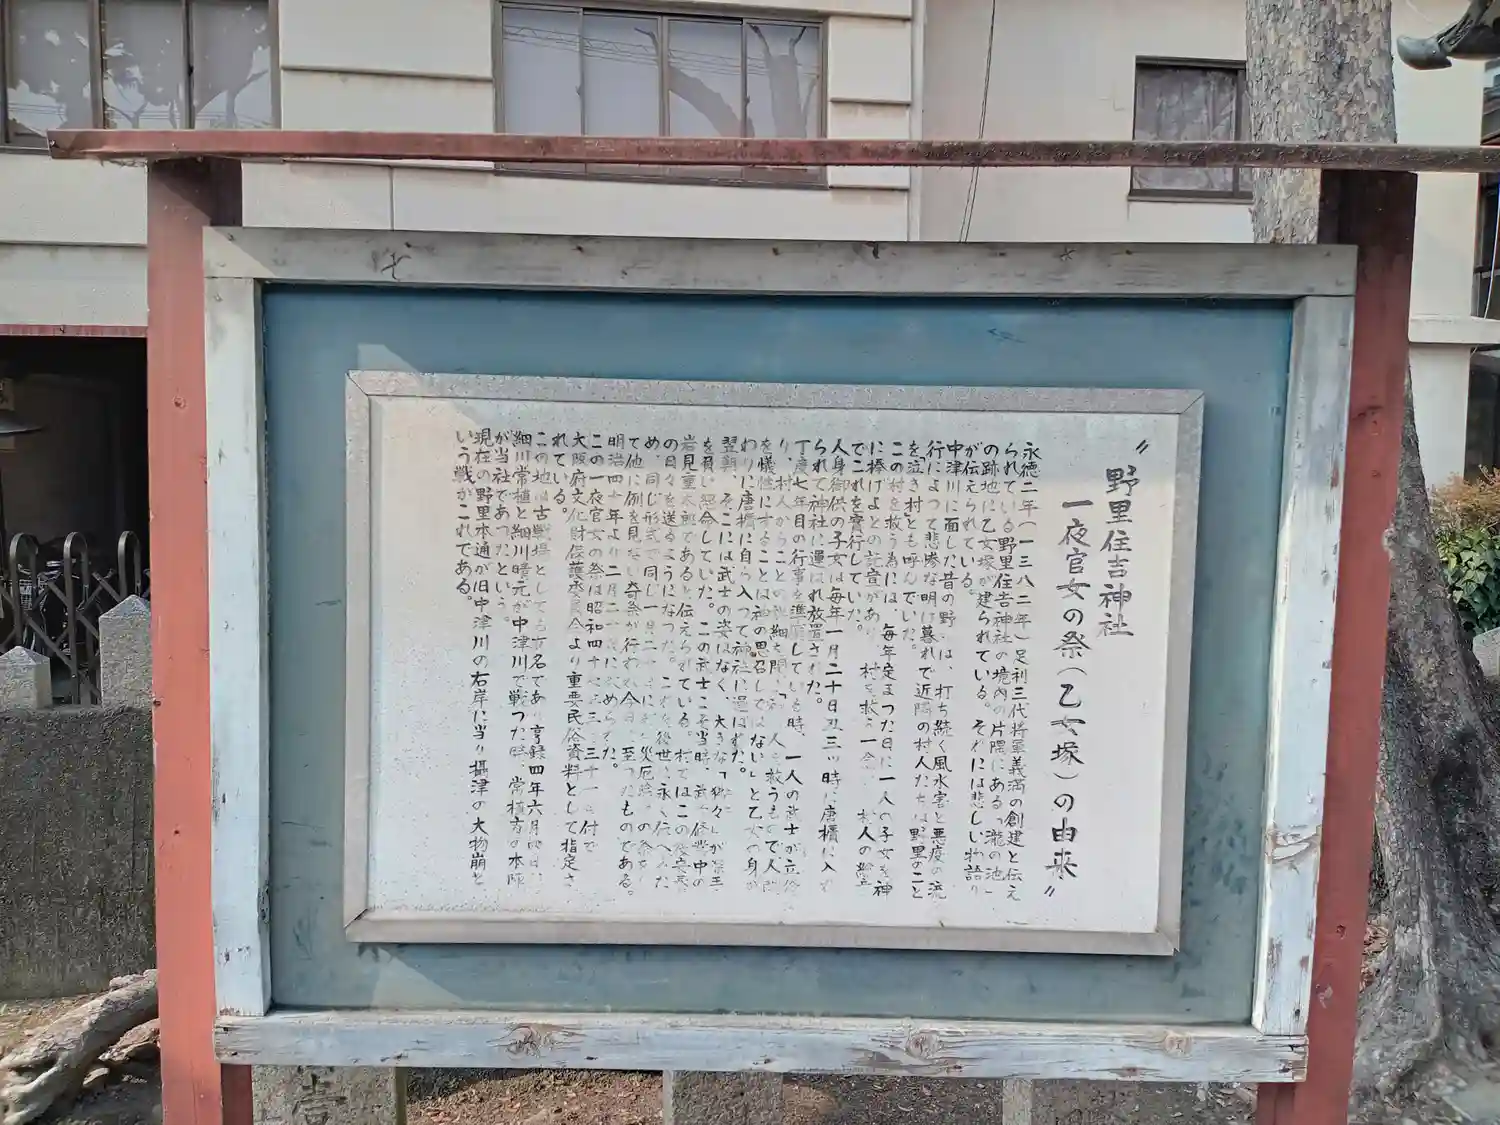 〝野里住吉神社
一夜官女の祭(乙女塚)の由来〟
永徳二年(一三八二年)足利三代将軍義満の創建と伝え
られている野里住吉神社の境内の片隅にある「瀧の池」
の跡地に乙女塚が建られている。それには悲しい物語り
が伝えられている。
中津川に面した昔の野里は、打ち続く風水害と悪疫の流
行によって悲惨な明け暮れで近隣の村人たちは野里のこと
を泣き村とも呼んでいた。
この村を救う為には、毎年定まった日に一人の子女を神
に捧げよとの託宣があり、村を救う一念 村人の総意
でこれを實行していた。
人身御供の子女は毎年一月二十日丑三ッ時に唐櫃に入
られて神社に運ばれ放置された。
丁度七年目の行事を準備している時、一人の武士が立寄
り、村人からことの詳細を聞き「 人を救うもので人間
を犠牲にすることは神の思召しではない」と乙女の身が
わりに唐櫃に自ら入って神社に運ばれた。
翌朝、そこには武士の姿はなく、大きな「狒々」が深手
を負い絶命していた。この武士こそ当時、武者修業中の
岩見重太郎であると伝えられている。村ではこの後安泰
の日々を送るようになった。これを後世に永く伝へるた
め、同じ形式で同じ一月二十日に 災厄除けの祭を
て他に例を見ない奇祭が行われ今日に至ったものである。
明治四十年より二月二十日に改めらてた。
この一夜官女の祭は昭和四十七年三月三十一日付で
大阪府文化財保護委員会より重要民俗資料として指定さ
れている。
この地は古戦場としても有名であり享録四年六月四日、
細川常植と細川晴元が中津川で戦った時、常植方の本陣
が当社であったという。
現在の野里本通が旧中津川の右岸に当り摂津の大物崩と
いう戦がこれである。